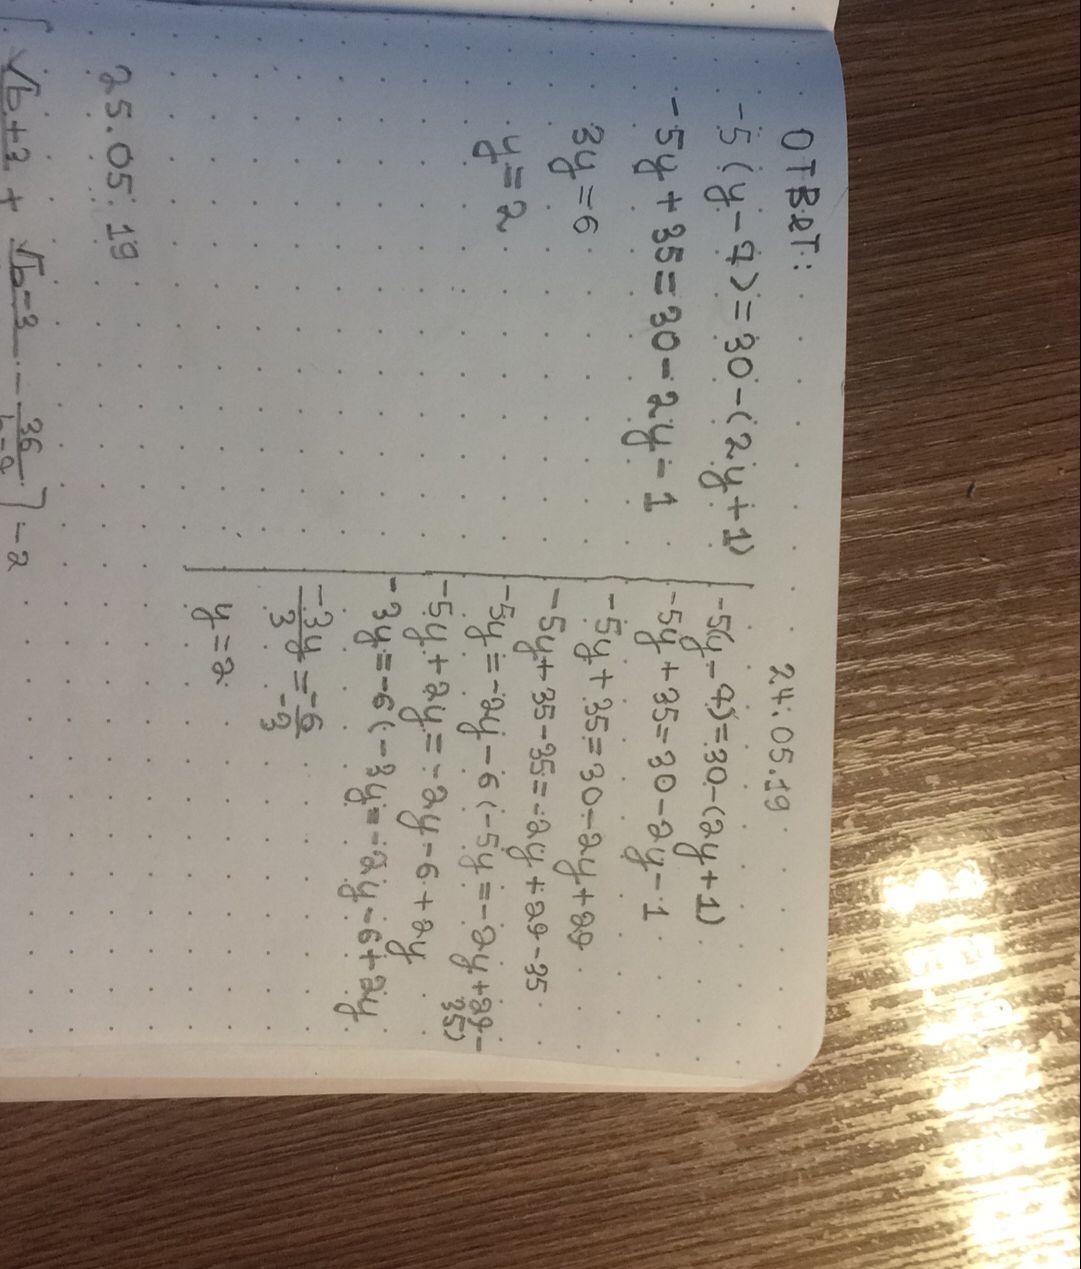 24.05.19
ОТВеТ:
-5(y-7)=30-(2y+1)
-5y+35=30-2y-1
3y=6
y=2
-5(y-7)=30-(2y+1)
-5y+35=30-2y-1
-5y+35=30-2y+29
-5y+35-35=-2y+29-35
-5y=-2y-6(-5y=-2y+29-
35)
-5y+2y=-2y-6+2y
-3y=-6(-3y=-2y-6+2y
-3y/3=-6/-3
y=2
25.05.19
[√b+3/ + √b-3/ - 36/b-9] -2